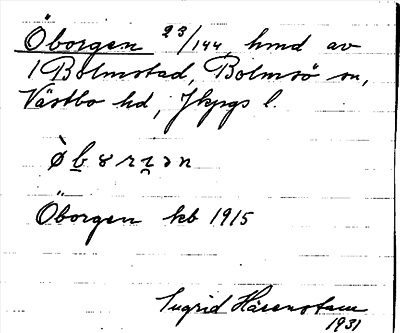 Öborgen 23/144, hmd av
1 Bolmstad, Bolmsö sn,
Västbo hd, Jkpgs l.
Öborgen kb 1915
Ingrid Håkenstam
1931